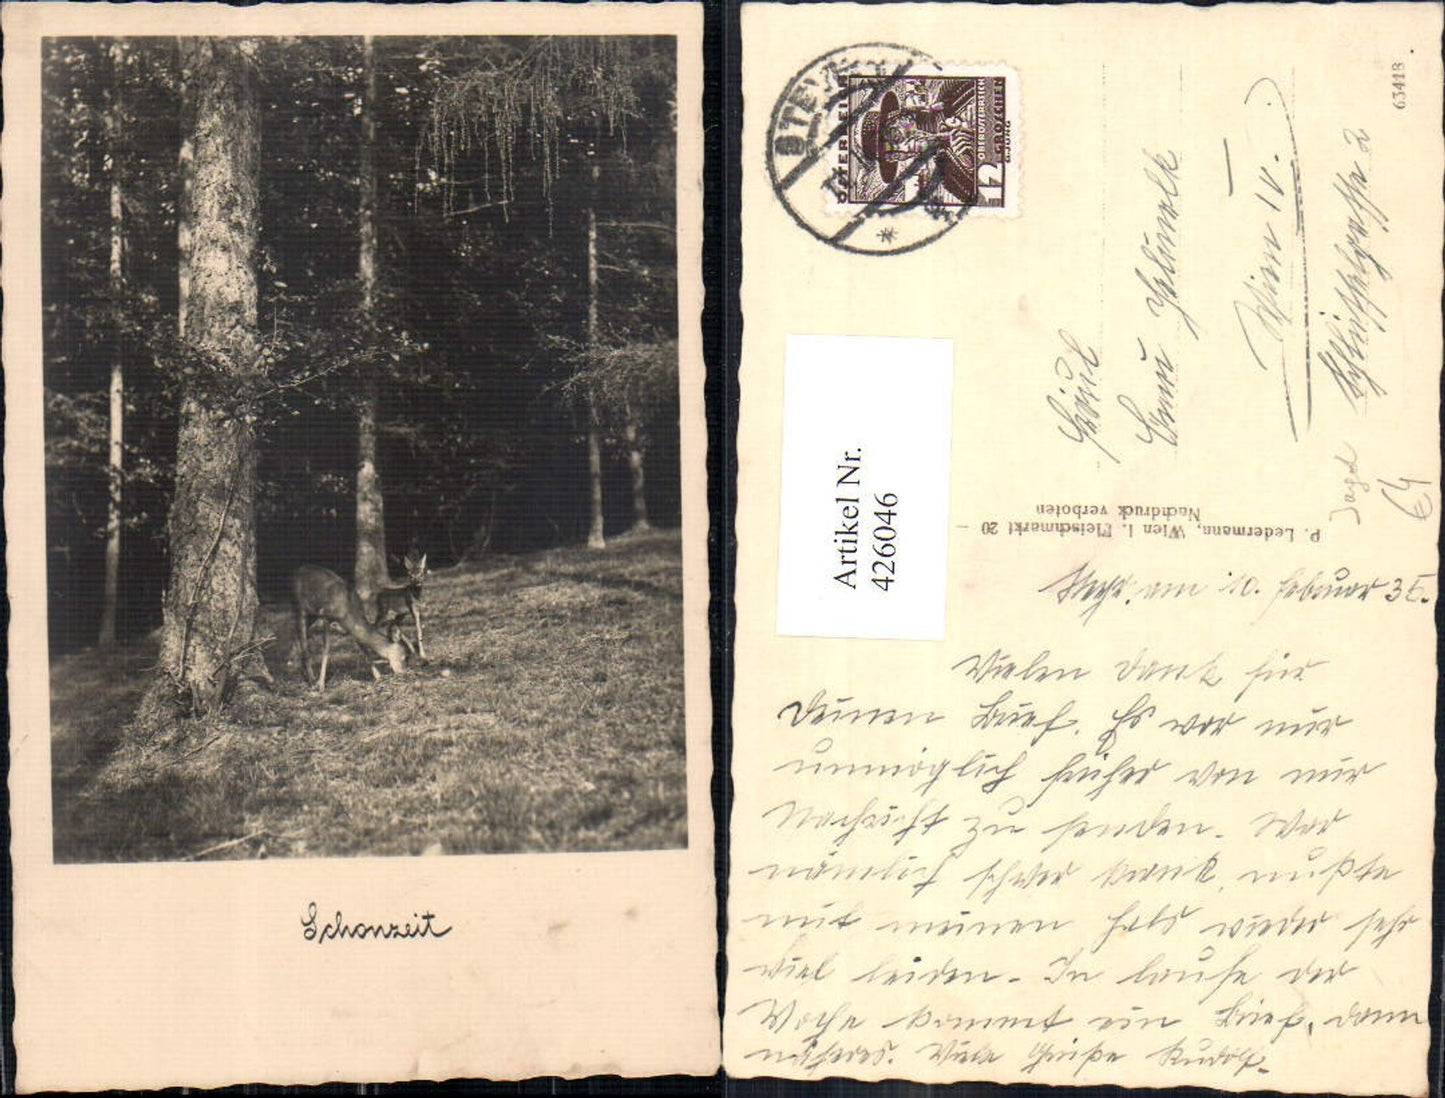 Schonzeit
STEYR
ÖSTERREICH
OBERÖSTERREICH
12 GROSCHEN
Artikel Nr.
426046
63418
Wien IV.
2
Jagd
64
P. Ledermann, Wien I. Fleischmarkt 20 -
Nachdruck verboten
Steyr, am 10. Februar 35.
Vielen Dank für
Deinen Brief. Es war mir
unmöglich früher von mir
Nachricht zu senden. War
nämlich schwer krank, mußte
mit meinen Hals wieder sehr
viel leiden. Im Laufe der
Woche kommt ein Brief, dann
näheres. Viele Grüße Rudolf.